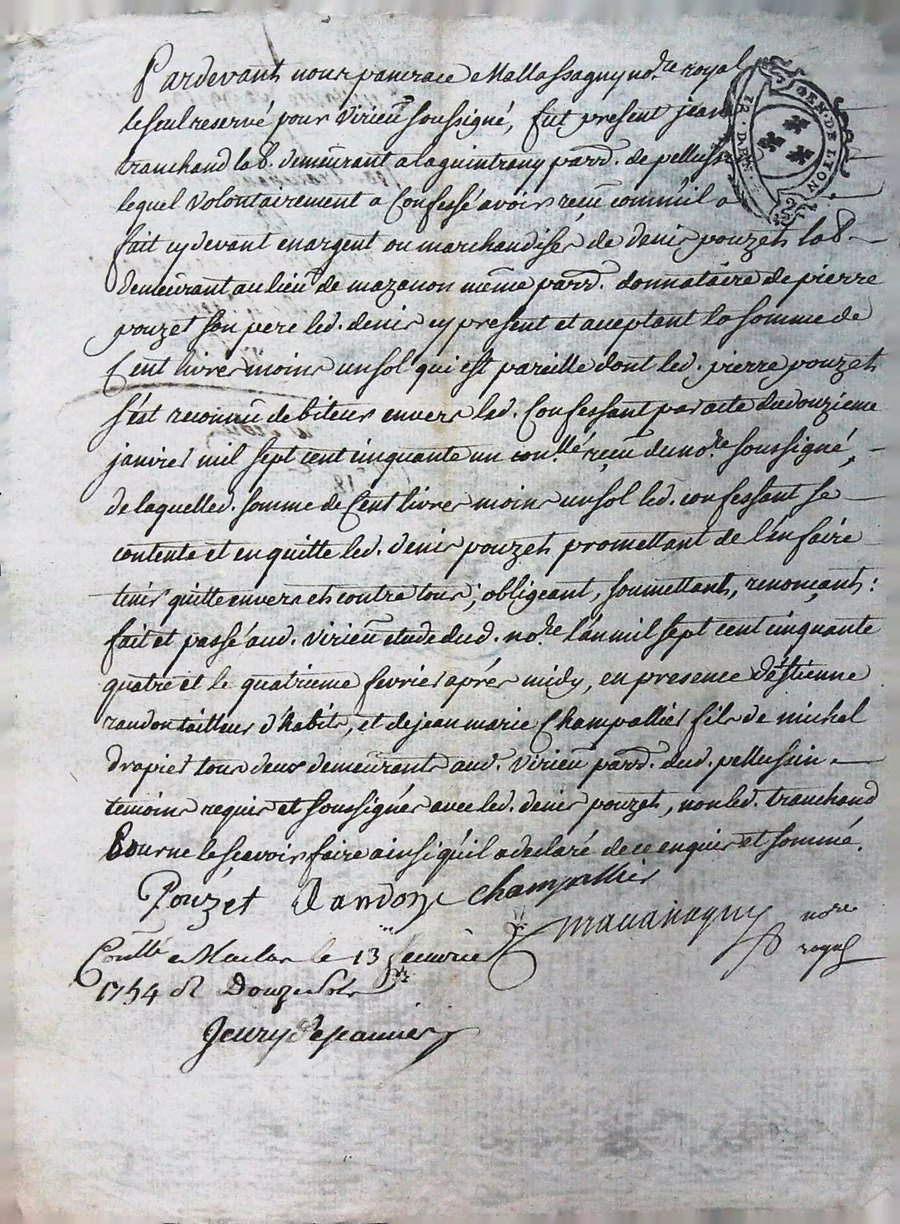 Pardevant nous pancrace Mallassagny no.re royal
le seul reservé pour Virieu soussigné, fut present jean
tranchand lab. demeurant a laquintrany parr. de pellussin
lequel volontairement a Confessé avoir recu comme il a
fait cy devant en argent ou marchandises de denis pouzet lab
demeurant au lieu de mazonon même parr. donnataire de pierre
pouzet son pere led. denis cy present et aceptant la somme de
Cent livres moins un sol qui est pareille dont led. pierre pouzet
s'est reconnu debiteur envers led. Confessant par acte du douzieme
janvier mil sept cent cinquante un con.llé reçu du no.re soussigné,
de laquelled. somme de Cent livres moins un sol led. confessant se
contente et en quitte led. denis pouzet promettant de l'en faire
tenir quitte envers et contre tous; obligeant, soumettant, renonçant:
fait et passé aud. Virieu etude dud. no.re l'an mil sept cent cinquante
quatre et le quatrieme fevrier aprés midy, en presence d'Estienne
randon tailleur d'habits, et de jean marie Champallier fils de michel
drapier tous deux demeurants aud. Virieu parr. dud. pellussin
temoins requis et soussignés avec led. denis pouzet, non led. tranchand
pour ne le scavoir faire ainsi qu'il a declaré de ce enquis et sommé.
Pouzet Randon Champallier
Mallassagny no.re
royal
Con.llé a Maclas le 13 feuvrie
1754 R Douze sols
GEN. DE LYON